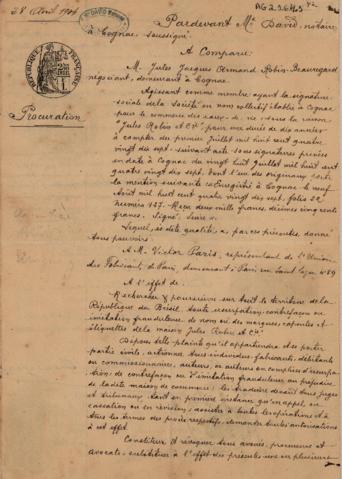 28 Avril 1904
Pardevant Me David, notaire,
à Cognac, soussigné.
A Comparu:
M. Jules Jacques Armand Robin-Beauregard
négociant, demeurant à Cognac
Agissant comme membre ayant la signature
sociale de la Société en nom collectif établie à Cognac
pour le commerce des eaux-de-vie, sous la raison
"Jules Robin et Cie" pour une durée de dix années
à compter du premier Juillet mil huit cent quatre
vingt dix sept, suivant acte sous signatures privées
en date à Cognac du vingt huit Juillet mil huit cent
quatre vingt dix sept, dont l'un des originaux porte
la mention suivante: Enregistré à Cognac le neuf
Août mil huit cent quatre vingt dix sept, folio 22
Reçu deux mille francs, décimes cinq cents
francs. Signé:
Lequel, es dite qualité, a, par ces présentes donné
tous pouvoirs
A M. Victor Paris, représentant de l'Union
des Fabricants de Paris, demeurant à Paris
A l'effet de:
Rechercher & poursuivre sur tout le territoire de la
République du Brésil toute usurpation, contrefaçon ou
imitation frauduleuse de nom ou de marques, capsules et
étiquettes de la maison Jules Robin et Cie
Déposer telle plainte qu'il appartiendra et se porter
partie civile, actionner tous individus, fabricants, débitants
ou commissionnaires, auteurs, co auteurs ou complices d'usurpa-
tion, de contrefaçon ou d'imitation frauduleuse au préjudice
de la dite maison de commerce; les traduire devant tous juges
et tribunaux tant en première instance qu'en appel en
cassation ou en révision; assister à toutes les opérations et à
tous les termes des procès respectifs, demander toutes autorisations
à cet effet.
Constituer et révoquer tous avoués, procureurs et
avocats, substituer à l'effet des présentes une ou plusieurs
RÉPUBLIQUE FRANÇAISE
Procuration